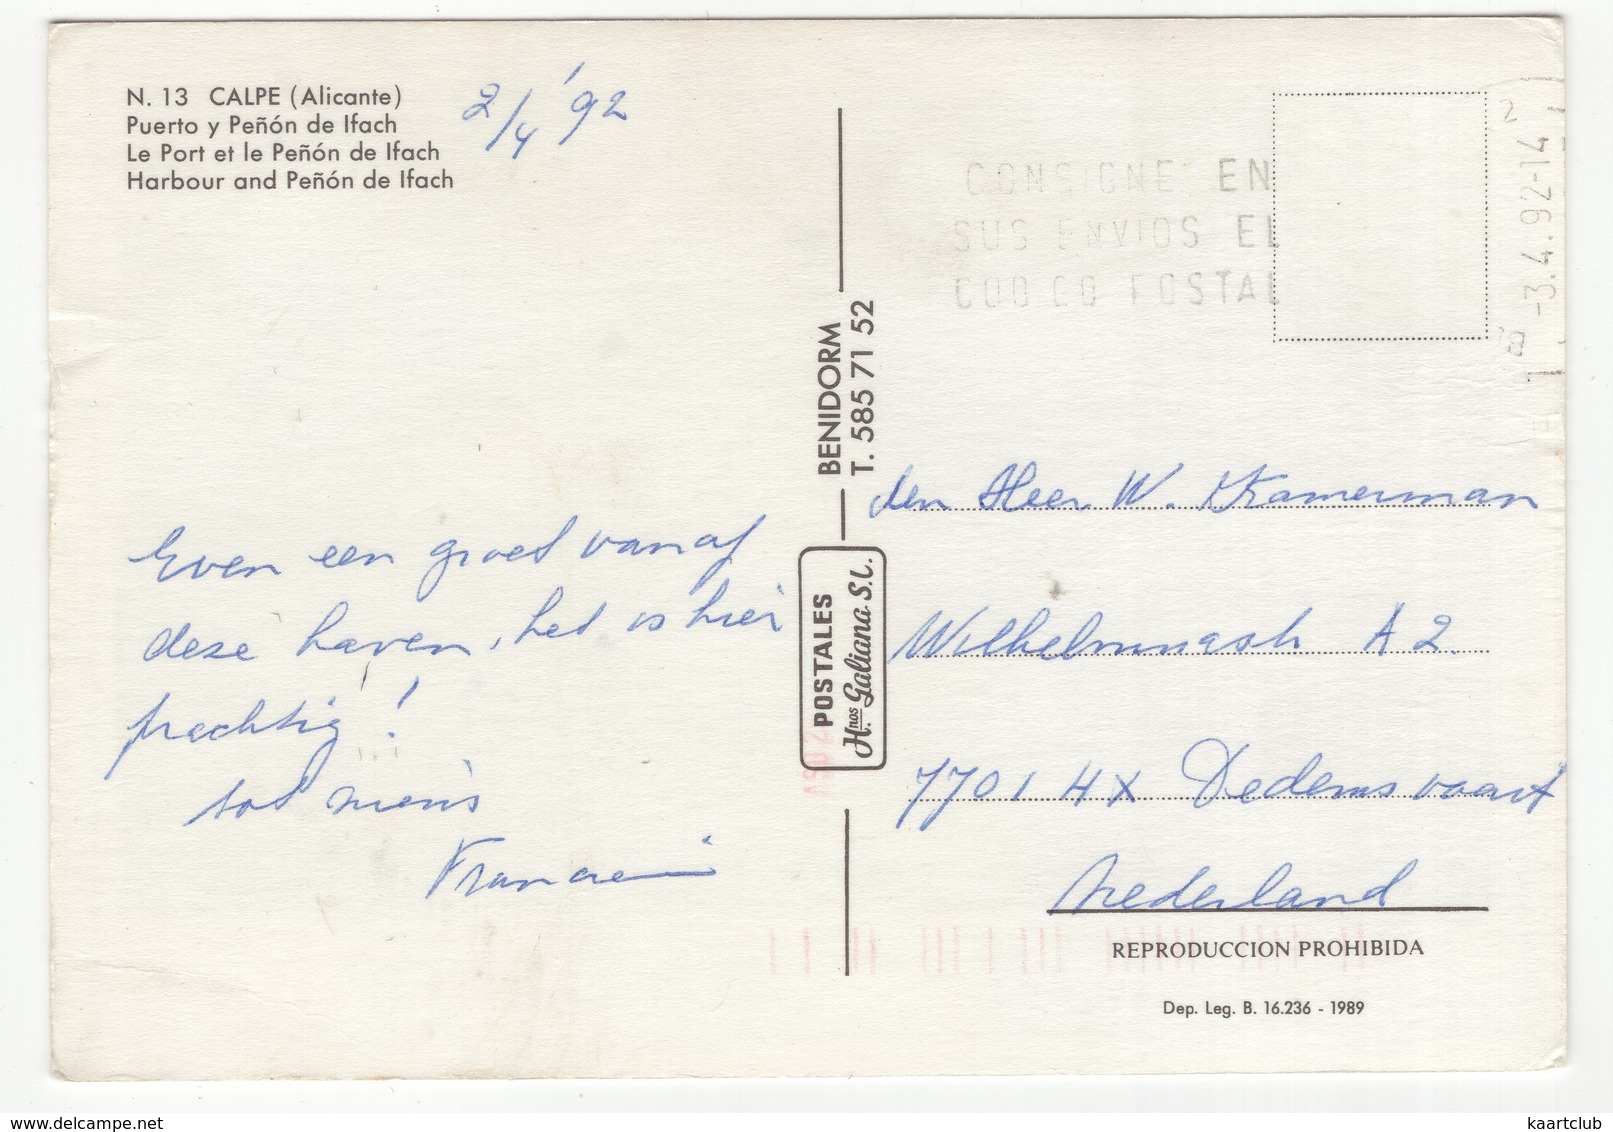 N. 13 CALPE (Alicante)
Puerto y Peñón de Ifach
Le Port et le Peñón de Ifach
Harbour and Peñón de Ifach
2/4 '92
Even een groet vanaf
deze haven, het is hier
prachtig!
tot niens
BENIDORM
T. 585 71 52
POSTALES
H.nos Galiana S.L.
CONSIGNE EN
SUS ENVIOS EL
CODIGO POSTAL
-3.4.92-14
den Heer W. Kramerman
Wilhelminastr A 2.
7701 HX Dedemsvaart
Nederland
REPRODUCCION PROHIBIDA
Dep. Leg. B. 16.236 - 1989
delcampe.net
kaartclub